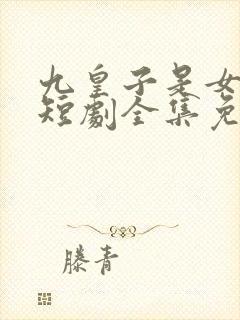 九皇子是女
短劇全集免
滕青